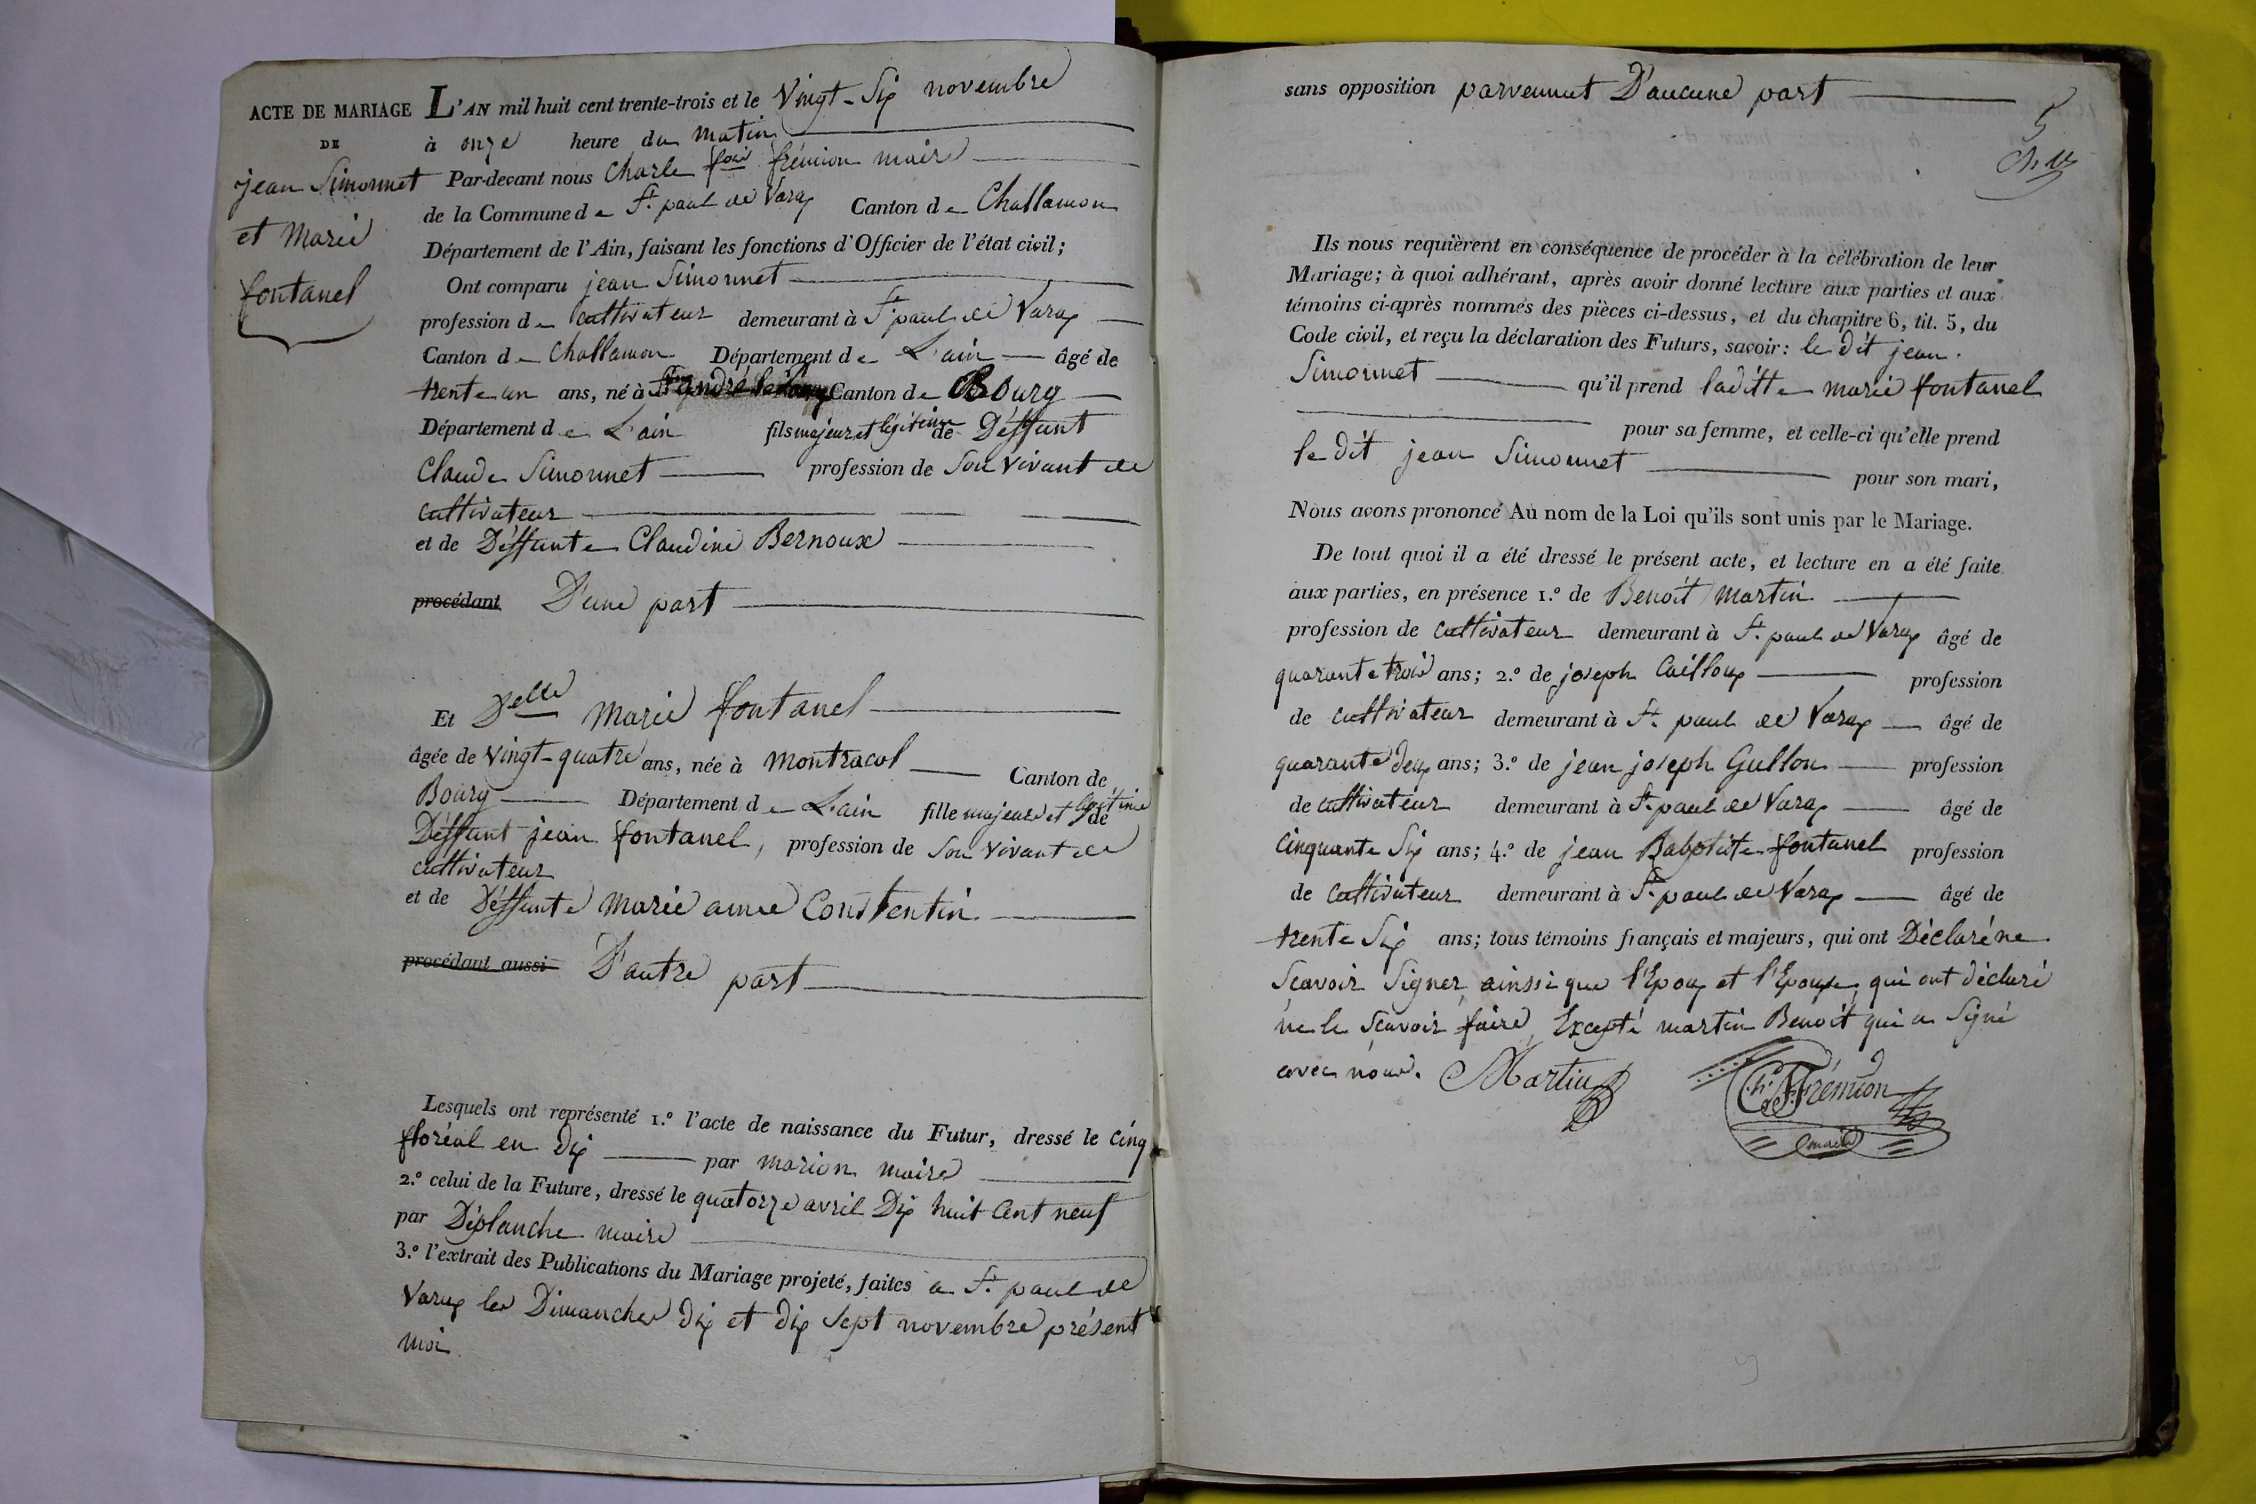 ACTE DE MARIAGE
DE
jean Simonnet
et Marie
fontanel
L'AN mil huit cent trente-trois et le Vingt-Six novembre
à onze heure du matin
Par-devant nous Charle fois frémion maire
de la Commune de St. paul de Varax Canton de Challamon
Département de l'Ain, faisant les fonctions d'Officier de l'état civil;
Ont comparu jean Simonnet
profession de cultivateur demeurant à St. paul de Varax
Canton de Challamon Département de L'ain âgé de
trente un ans, né à Canton de Bourg
Département de L'ain fils majeur et légitime de Déffunt
Claude Simonnet profession de Son vivant de
cultivateur
et de Déffunte Claudine Bernoux
procédant D'une part
Et Delle Marie fontanel
âgée de vingt-quatre ans, née à montracol Canton de
Bourg Département de L'ain fille majeure et légitime de
Déffunt jean fontanel, profession de Son vivant de
cultivateur
et de Déffunte Marie anne Constentin
procédant aussi D'autre part
Lesquels ont représenté 1.º l'acte de naissance du Futur, dressé le Cinq
floréal en Dix par marion maire
2.º celui de la Future, dressé le quatorze avril Dix huit Cent neuf
par Déplanche maire
3.º l'extrait des Publications du Mariage projeté, faites a St. paul de
Varax les Dimanches dix et dix Sept novembre présent
moi
sans opposition parvennut D'aucune part
5
Ils nous requièrent en conséquence de procéder à la célébration de leur
Mariage; à quoi adhérant, après avoir donné lecture aux parties et aux
témoins ci-après nommés des pièces ci-dessus, et du chapitre 6, tit. 5, du
Code civil, et reçu la déclaration des Futurs, savoir: le dit jean
Simonnet qu'il prend laditte marie fontanel
pour sa femme, et celle-ci qu'elle prend
le dit jean Simonnet pour son mari,
Nous avons prononcé Au nom de la Loi qu'ils sont unis par le Mariage.
De tout quoi il a été dressé le présent acte, et lecture en a été faite
aux parties, en présence 1.º de Benoit Martin
profession de cultivateur demeurant à St. paul de Varax âgé de
quarante trois ans; 2.º de joseph Cailloux profession
de cultivateur demeurant à St. paul de Varax âgé de
quarante deux ans; 3.º de jean joseph Gullon profession
de cultivateur demeurant à St. paul de Varax âgé de
Cinquante Six ans; 4.º de jean Babptiste fontanel profession
de cultivateur demeurant à St. paul de Varax âgé de
trente Six ans; tous témoins français et majeurs, qui ont Déclaré ne
Scavoir Signer, ainssi que l'Epoux et l'Epouse, qui ont déclaré
ne le Scavoir faire, Excepté martin Benoit qui a Signé
avec nous. Martin Ch. F Frémion
maire